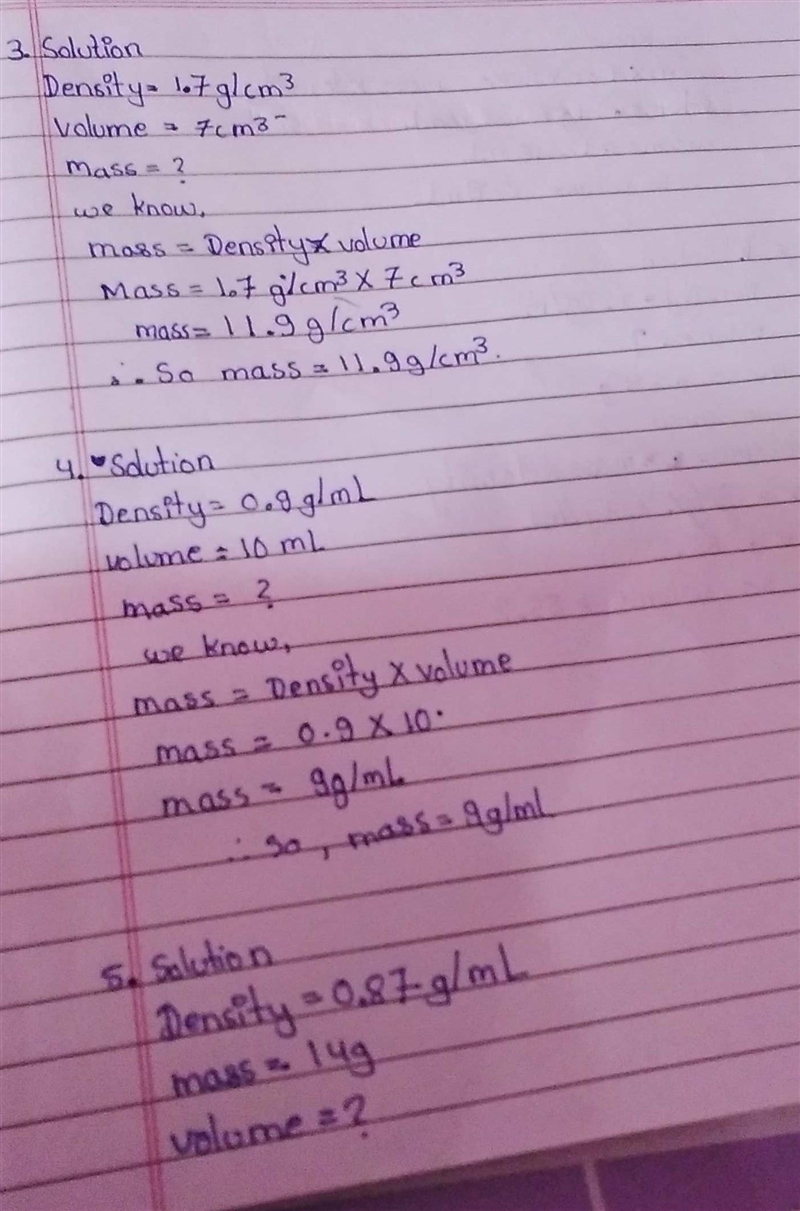 3. Solution
Density = 1.7 g/cm³
Volume = 7cm³
mass = ?
we know,
mass = Density x volume
Mass = 1.7 g/cm³ X 7 cm³
mass = 11.9 g/cm³
∴ So mass = 11.9g/cm³.
4. Solution
Density = 0.9 g/mL
volume = 10 mL
mass = ?
we know,
mass = Density X volume
mass = 0.9 X 10
mass = 9g/mL
∴ so, mass = 9g/mL
5. Solution
Density = 0.87 g/mL
mass = 14g
volume = ?